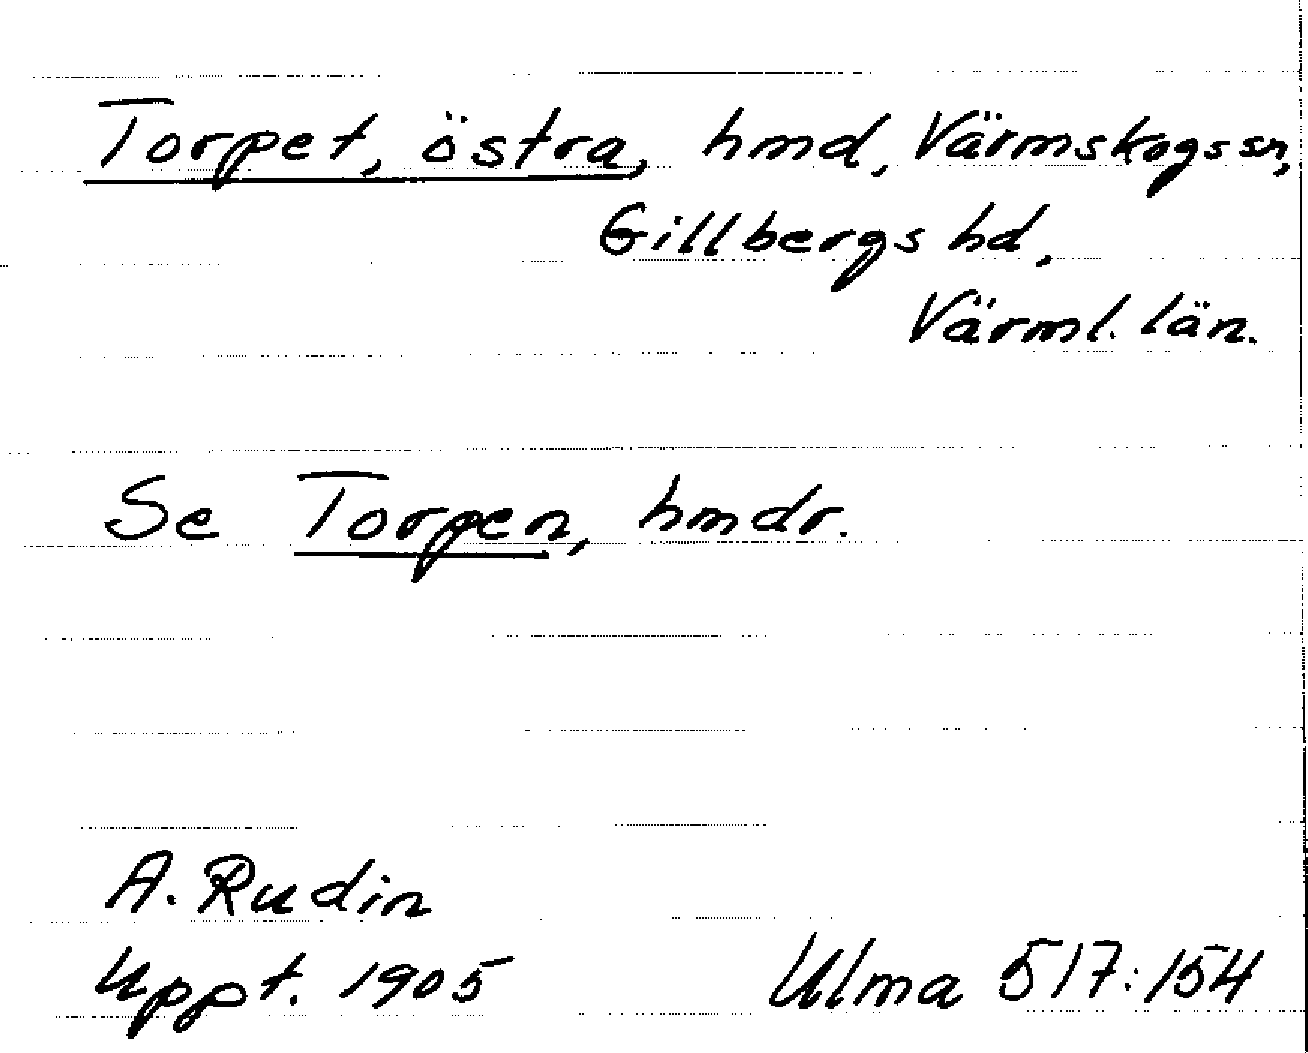 Torpet, östra, hmd, Värmskogs sn,
Gillbergs hd,
Värml. län.
Se Torpen, hmdr.
A. Rudin
Uppt. 1905
Ulma 517:154